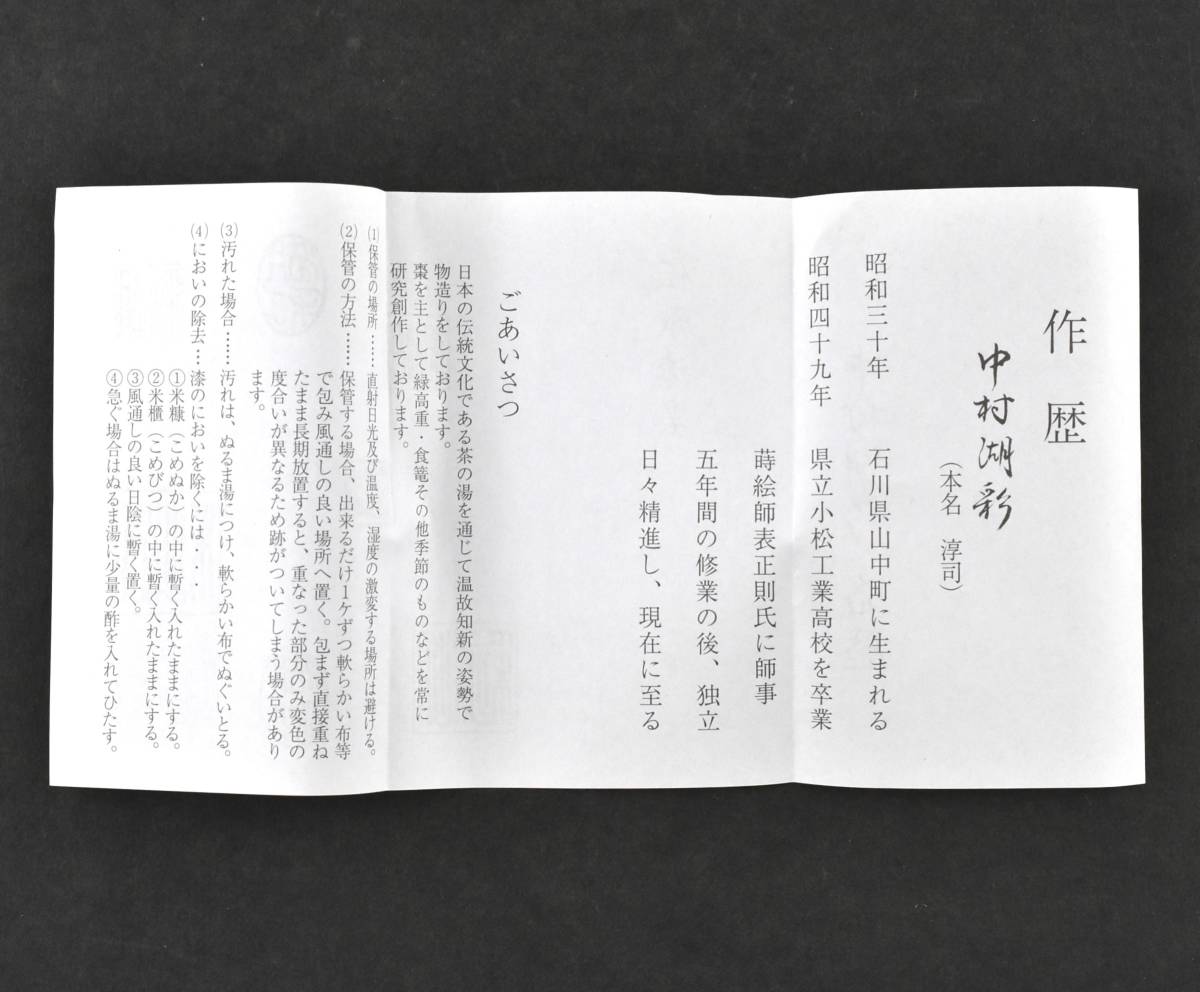 作歴
中村湖彩
(本名 淳司)
昭和三十年 石川県山中町に生まれる
昭和四十九年 県立小松工業高校を卒業
蒔絵師表正則氏に師事
五年間の修業の後、独立
日々精進し、現在に至る
ごあいさつ
日本の伝統文化である茶の湯を通じて温故知新の姿勢で
物造りをしております。
棗を主として縁高重・食篭その他季節のものなどを常に
研究創作しております。
(1)保管の場所……直射日光及び温度、湿度の激変する場所は避ける。
(2)保管の方法……保管する場合、出来るだけ1ケずつ軟らかい布等
で包み風通しの良い場所へ置く。包まず直接重ね
たまま長期放置すると、重なった部分のみ変色の
度合いが異なるため跡がついてしまう場合があり
ます。
(3)汚れた場合……汚れは、ぬるま湯につけ、軟らかい布でぬぐいとる。
(4)においの除去…漆のにおいを除くには・・・
①米糠(こめぬか)の中に暫く入れたままにする。
②米櫃(こめびつ)の中に暫く入れたままにする。
③風通しの良い日陰に暫く置く。
④急ぐ場合はぬるま湯に少量の酢を入れてひたす。